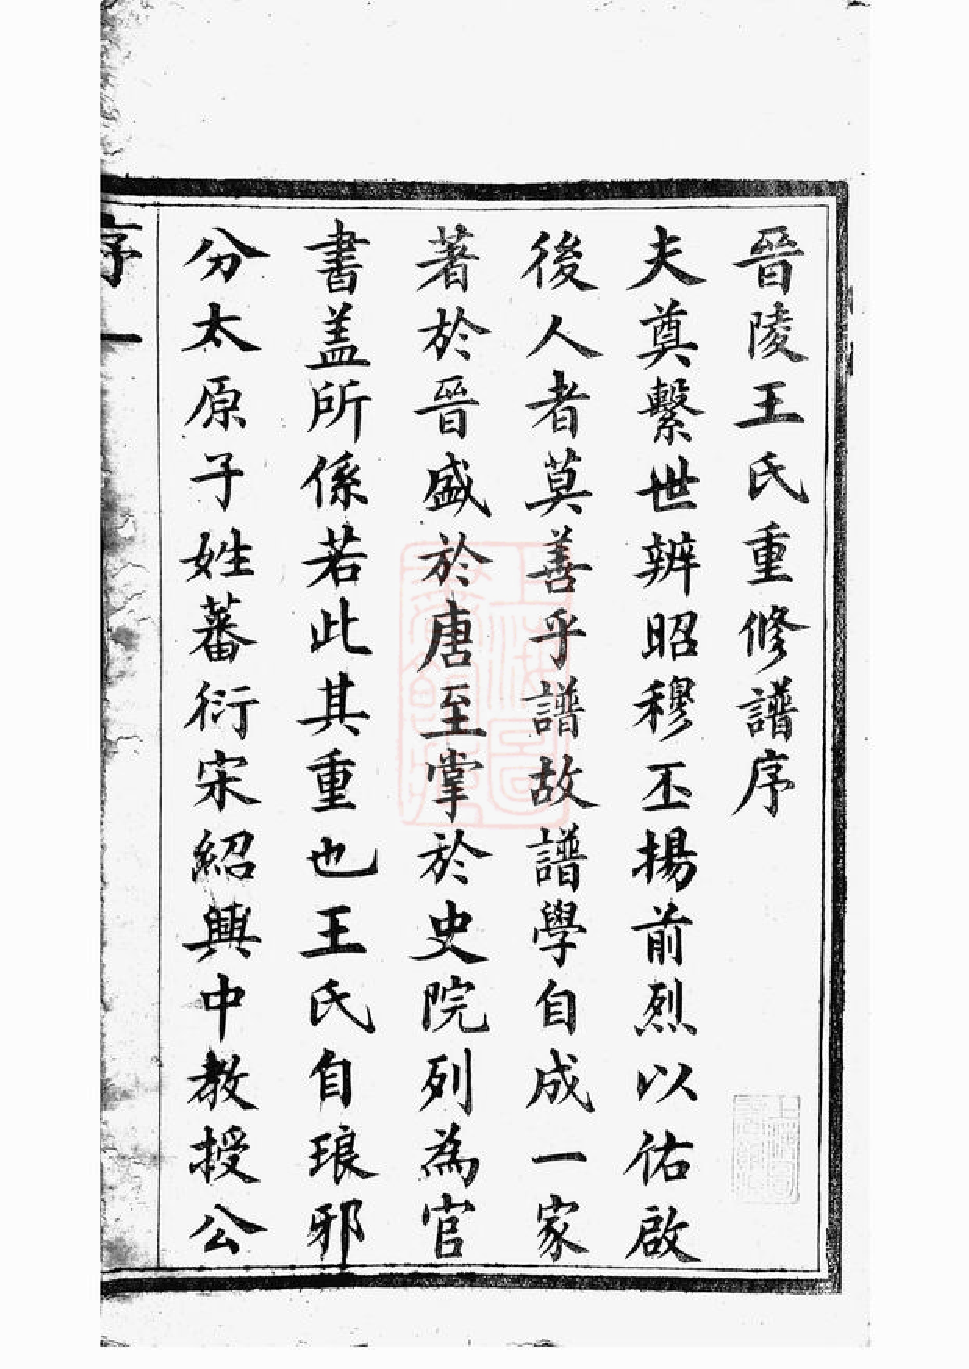 晉陵王氏重修譜序
夫奠繫世辨昭穆丕揚前烈以佑啟
後人者莫善乎譜故譜學自成一家
著於晉盛於唐至掌於史院列為官
書盖所係若此其重也王氏自琅邪
分太原子姓蕃衍宋紹興中教授公
序一